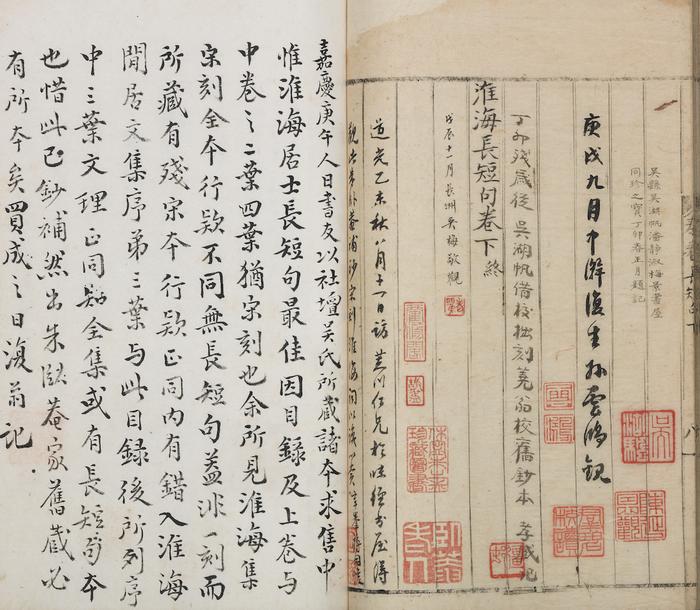 吳縣吳湖帆潘靜淑梅景書屋
同珍之寶丁卯春正月題記
庚戌九月中澣後生孫雲鴻觀
丁卯殘歲從吳湖帆借校拙刻蕘翁校舊鈔本 孝臧記
淮海長短句卷下終
戊辰十一月長洲吳梅敬觀
道光乙未秋八月十一日訪芙川仁兄於味經書屋得
休寧朱之赤珍藏圖書
臥菴老人
嘉慶庚午人日書友以社壇吳氏所藏諸本求售中
惟淮海居士長短句最佳因目錄及上卷与
中卷之二葉四葉猶宋刻也余所見淮海集
宋刻全本行欵不同無長短句蓋非一刻而
所藏有殘宋本行欵正同內有錯入淮海
閒居文集序弟三葉与此目錄後所列序
中三葉文理正同知全集或有長短句本
也惜此已鈔補然出朱臥菴家舊藏必
有所本矣買成之日復翁記